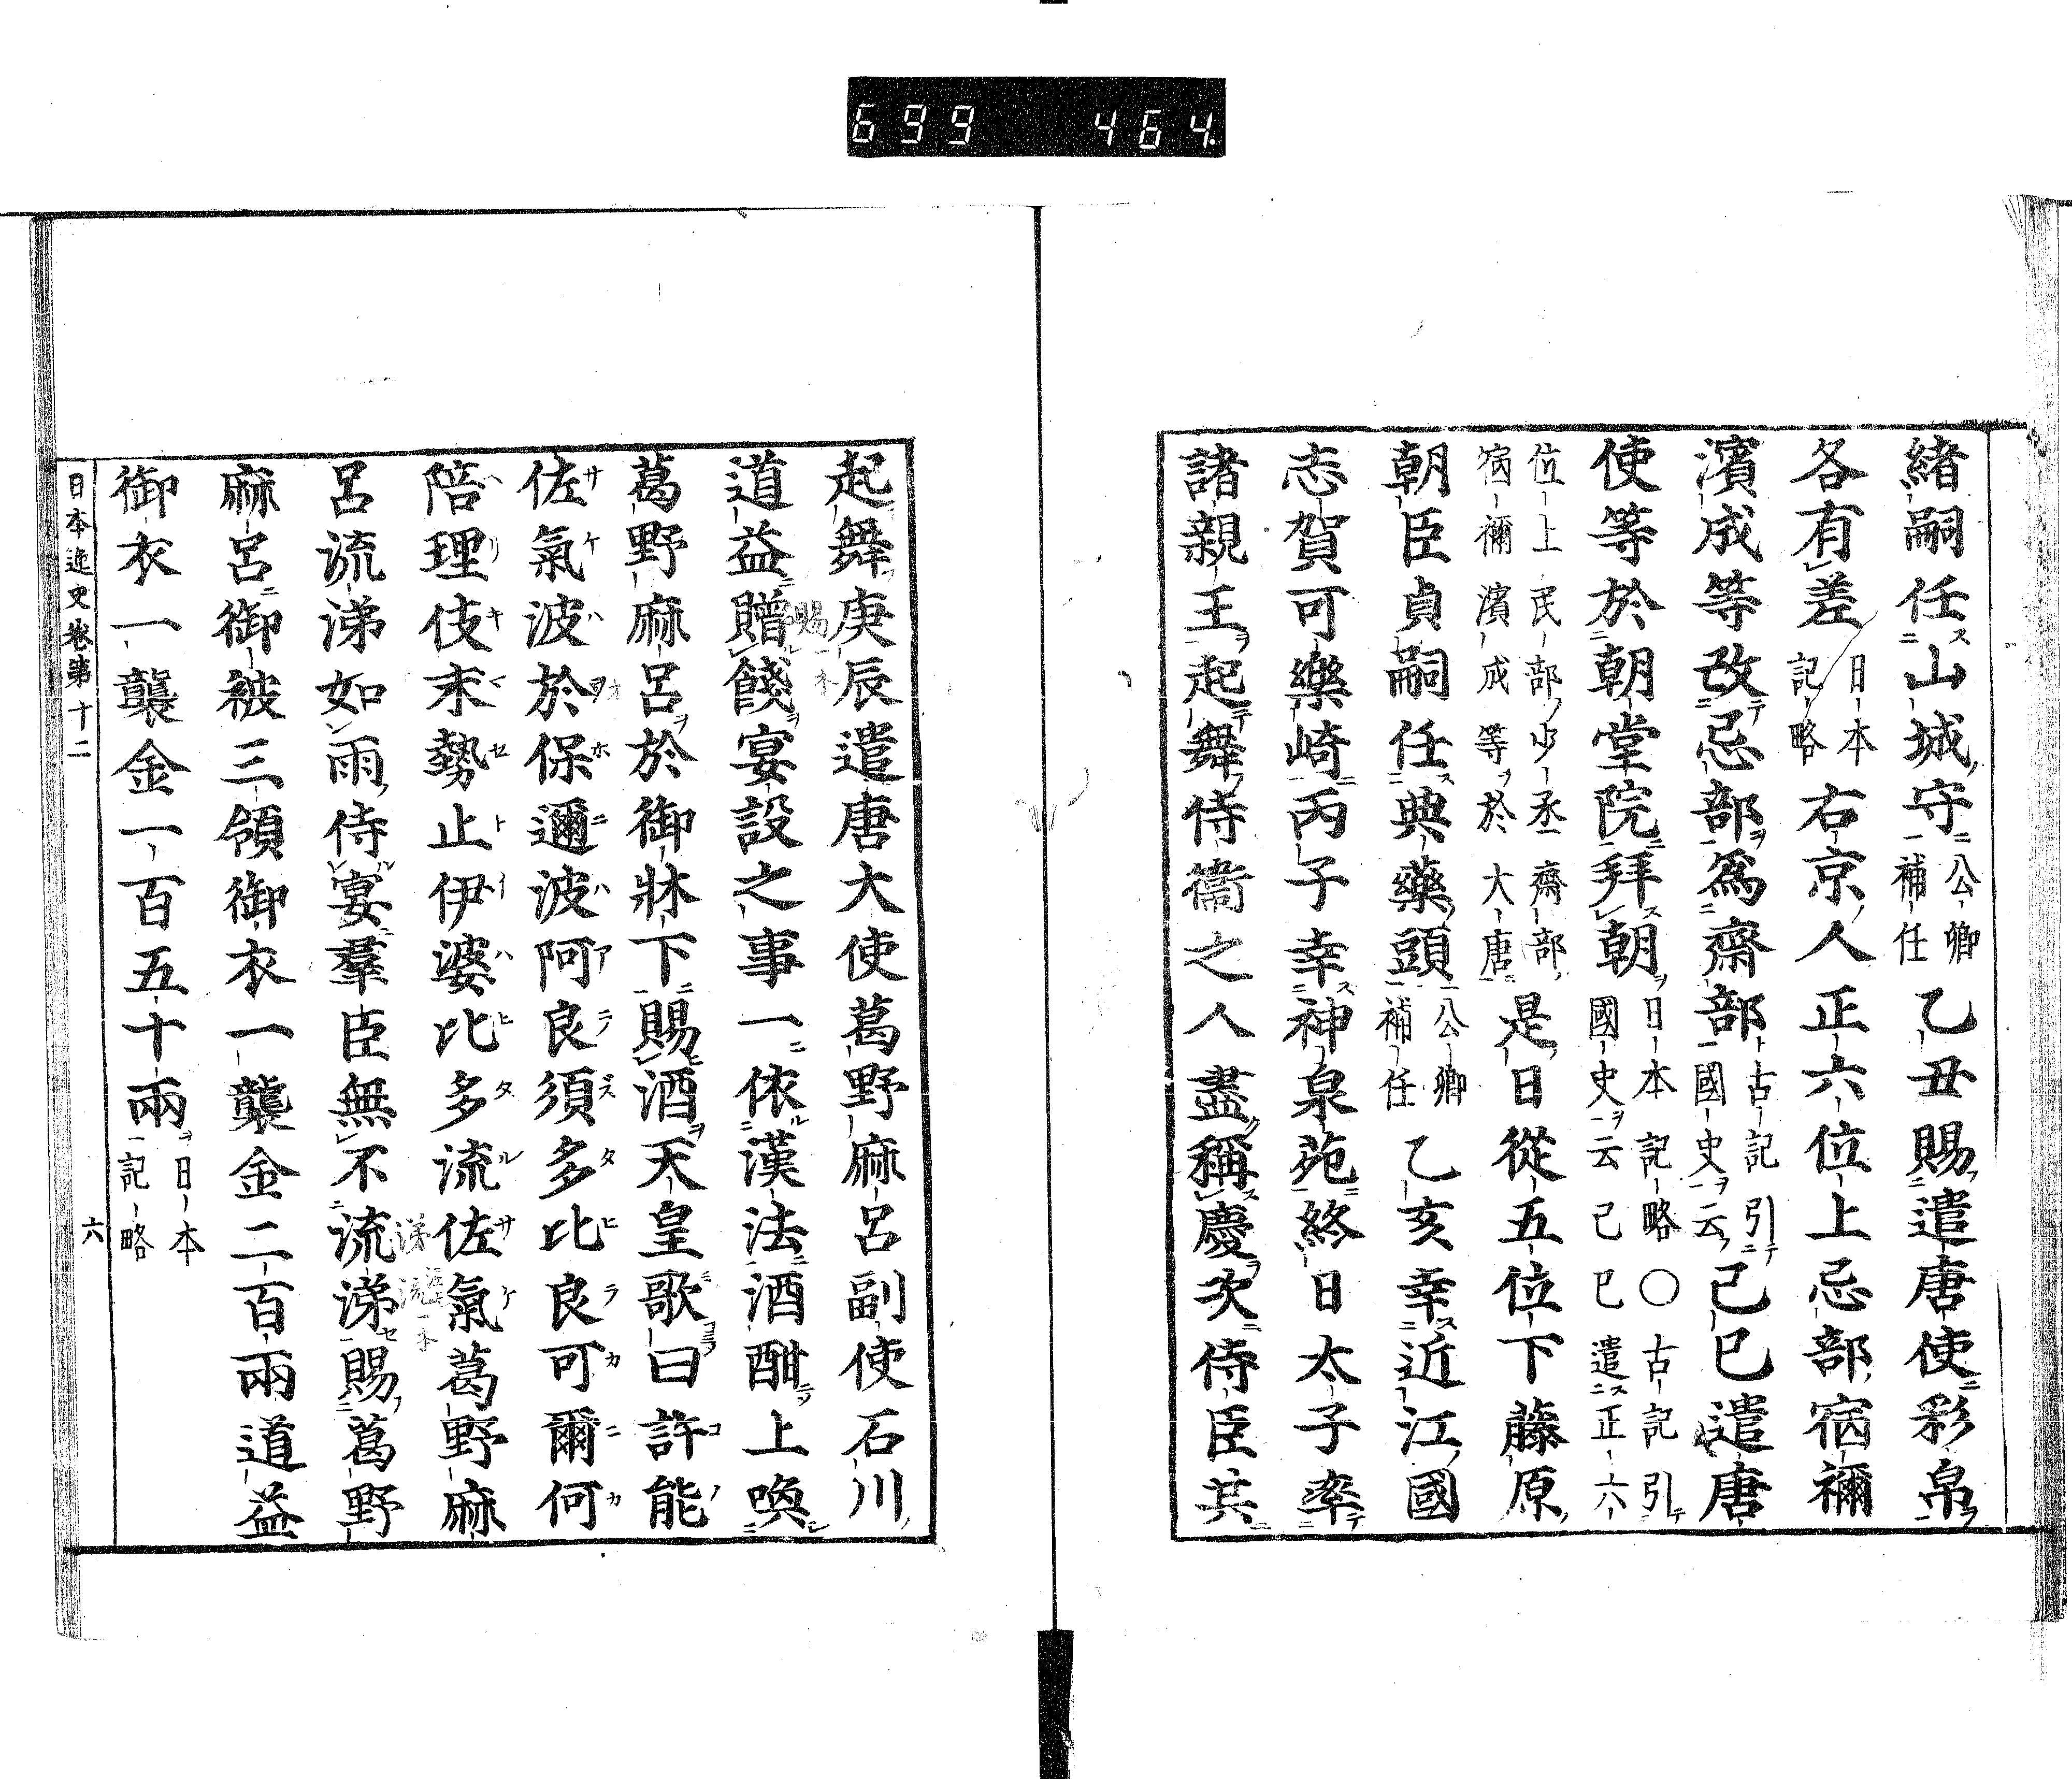 699 464.
緒嗣任山城守公卿補任乙丑賜遣唐使彩帛
各有差日本記略右京人正六位上忌部宿禰
濱成等改忌部爲齋部古記引國史云己巳遣唐
使等於朝堂院拜朝日本記略〇古記引國史云己巳遣正六
位上民部少丞齋部宿禰濱成等於大唐是日從五位下藤原
朝臣貞嗣任典藥頭公卿補任乙亥幸近江國
志賀可樂崎丙子幸神泉苑終日太子率
諸親王起舞侍衞之人盡稱慶次侍臣共
起舞庚辰遣唐大使葛野麻呂副使石川
道益贈餞宴設之事一依漢法酒酣上喚
葛野麻呂於御牀下賜酒天皇歌曰許能
佐氣波於保邇波阿良須多比良可爾何
陪理伎末勢止伊婆比多流佐氣葛野麻
呂流涕如雨侍宴羣臣無不流涕賜葛野
麻呂御被三領御衣一襲金二百兩道益
御衣一襲金一百五十兩日本記略
日本逸史卷第十二 六